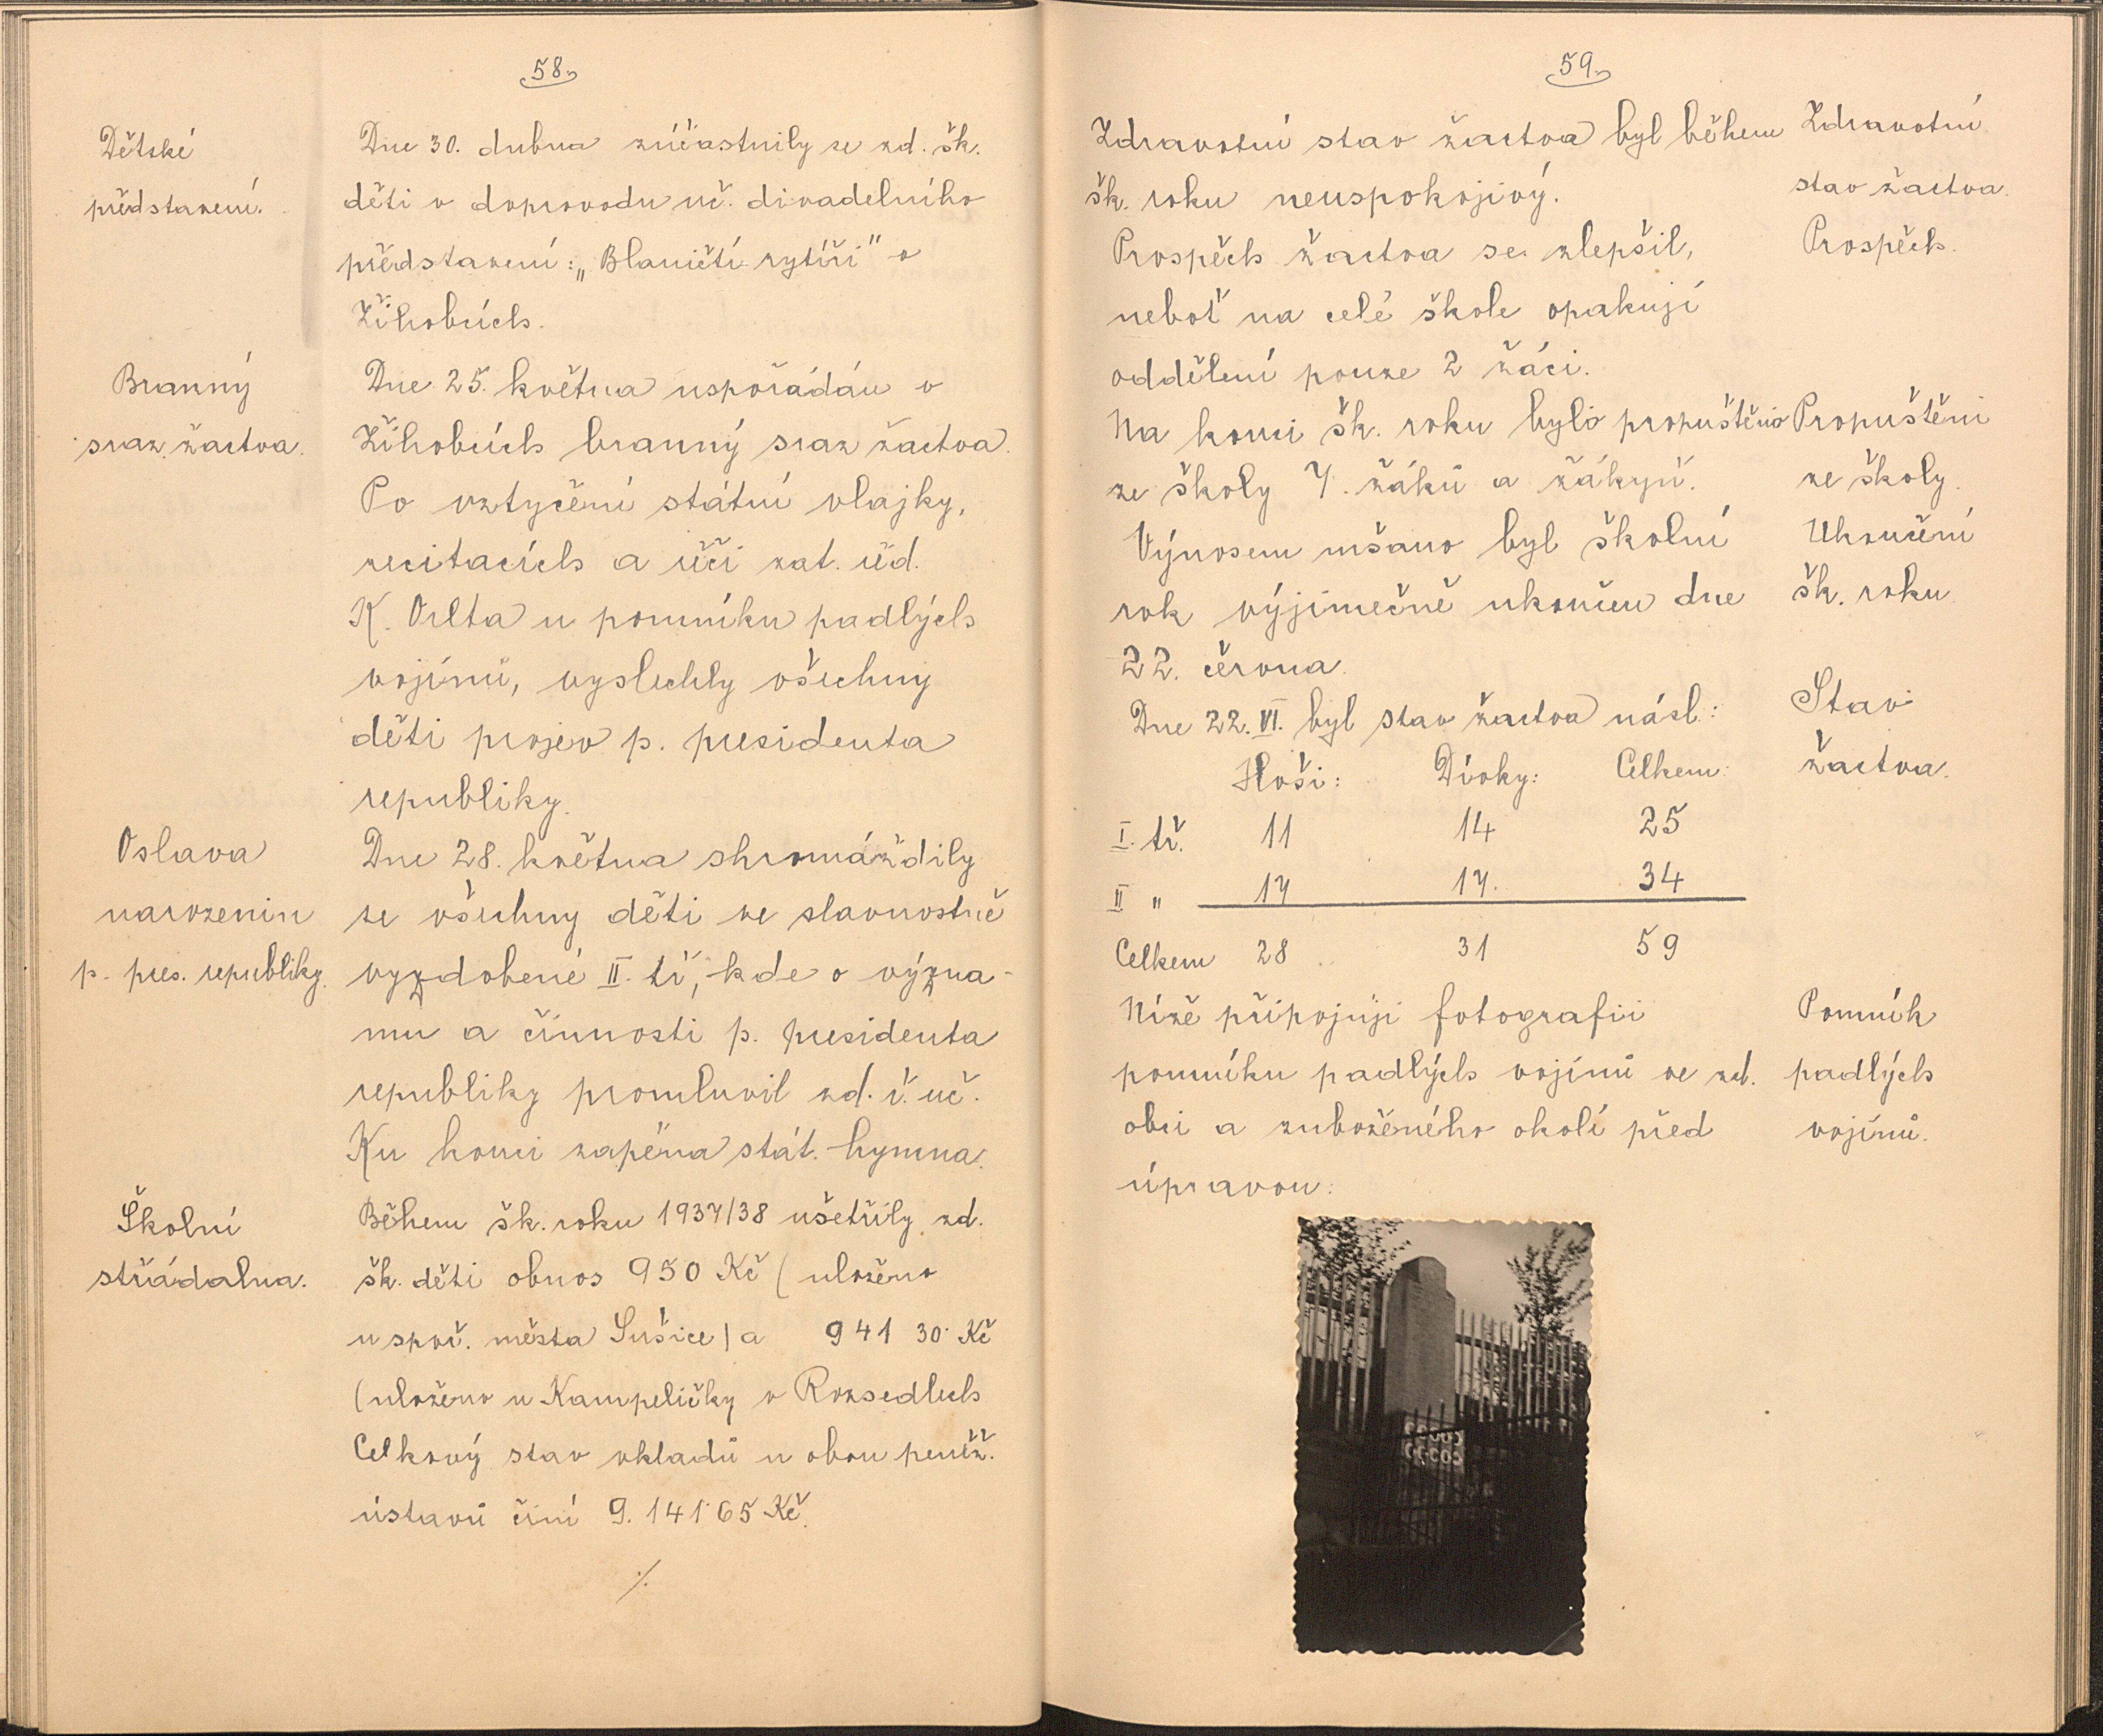 58.
Dětské
představení.
Dne 30. dubna zúčastnily se zd. šk.
děti v doprovodu uč. divadelního
představení: „Blaničtí rytíři" v
Žihobcích.
Branný
sraz žactva.
Dne 25. května uspořádán v
Žihobcích branný sraz žactva.
Po vztyčení státní vlajky,
recitacích a řeči zat. říd.
K. Orlta u pomníku padlých
vojínů, vyslechly všechny
děti projev p. presidenta
republiky.
Oslava
narozenin
p. pres. republiky.
Dne 28. května shromáždily
se všechny děti ve slavnostně
vyzdobené II. tř., kde o význa-
mu a činnosti p. presidenta
republiky promluvil zd. ř. uč.
Ku konci zapěna stát. hymna.
Školní
střádalna.
Během šk. roku 1937/38 ušetřily zd.
šk. děti obnos 950 Kč (uloženo
u spoř. města Sušice) a 941 30 Kč
(uloženo u Kampeličky v Rozsedlech
Celkový stav vkladů u obou peněž.
ústavů činí 9.141 65 Kč.
./.
59.
Zdravotní stav žactva byl během
šk. roku neuspokojivý.
Zdravotní
stav žactva.
Prospěch žactva se zlepšil,
neboť na celé škole opakují
oddělení pouze 2 žáci.
Prospěch.
Na konci šk. roku bylo propuštěno
ze školy 7 žáků a žákyň.
Propuštění
ze školy.
Výnosem mšano byl školní
rok výjimečně ukončen dne
22. června.
Ukončení
šk. roku.
Dne 22. VI. byl stav žactva násl.:
Stav
žactva.
Hoši: Dívky: Celkem:
I. tř. 11 14 25
II " 17 17. 34
Celkem 28 31 59
Níže připojuji fotografii
pomníku padlých vojínů ve zd.
obci a zuboženého okolí před
úpravou:
Pomník
padlých
vojínů.